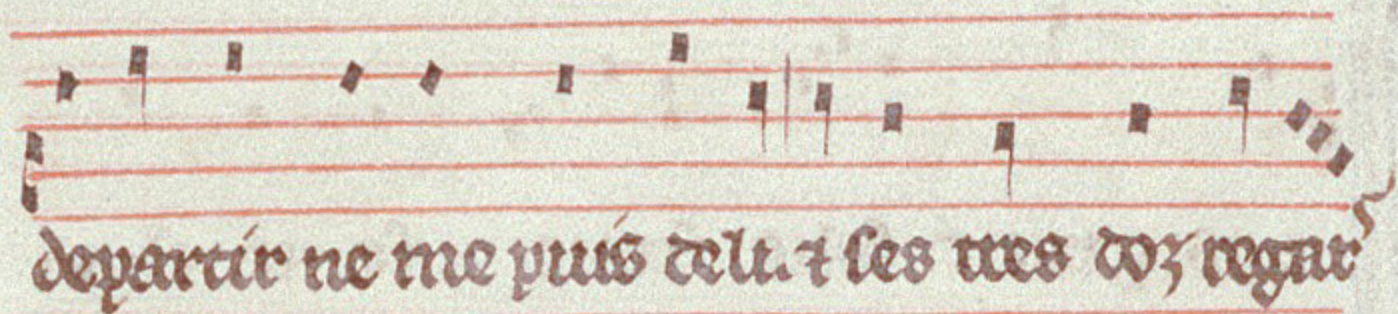 departir ne me puis deli. ⁊ ses tres doz regar